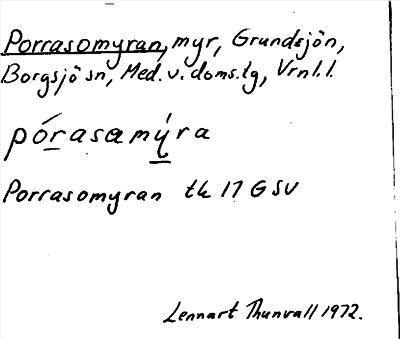 Porrasomyran, myr, Grundsjön,
Borgsjö sn, Med. v. doms.lg, Vrnl. l.
pórasamýra
Porrasomyran tk 17 G SV
Lennart Thunvall 1972.